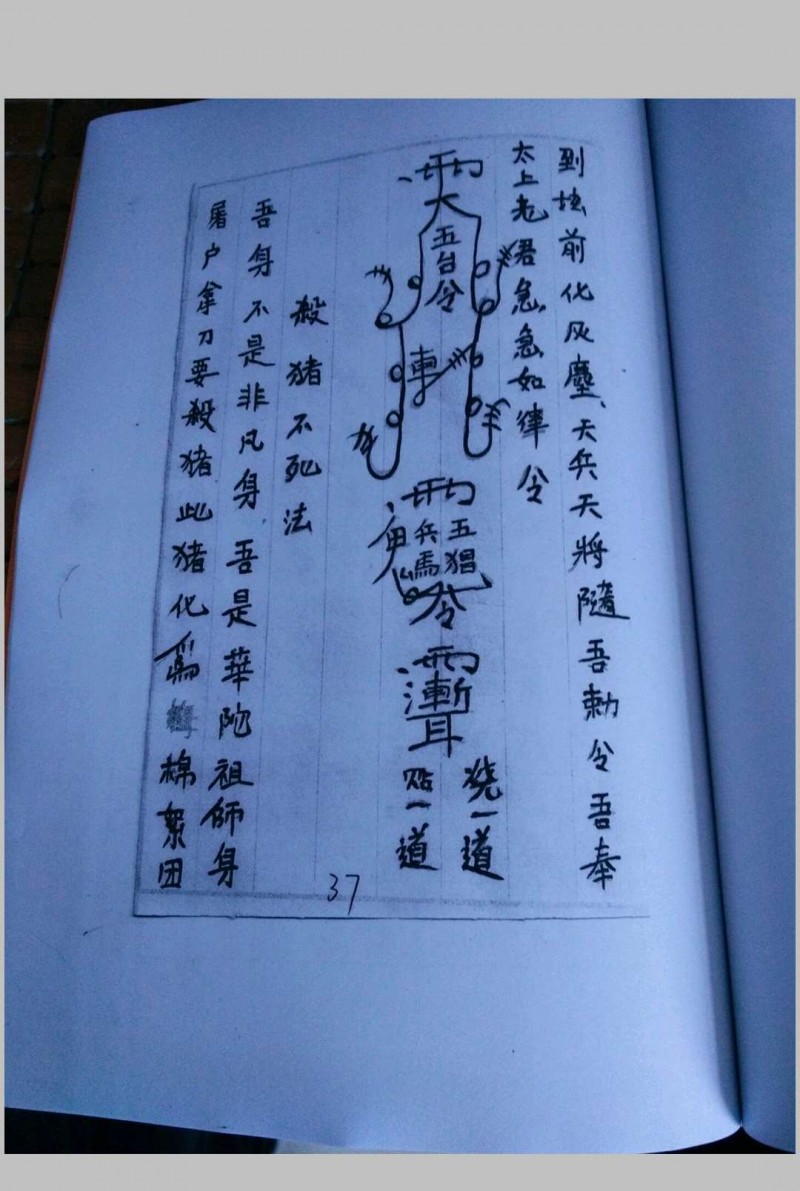 到坛前化灰塵、天兵天將隨吾勅令吾奉
太上老君急急如律令
雨大
五台令
車
雨
五猖
兵馬
令
雨漸耳
烧一道
貼一道
殺猪不死法
吾身不是非凡身吾是華陀祖師身
屠户拿刀要殺猪此猪化爲棉絮团
37